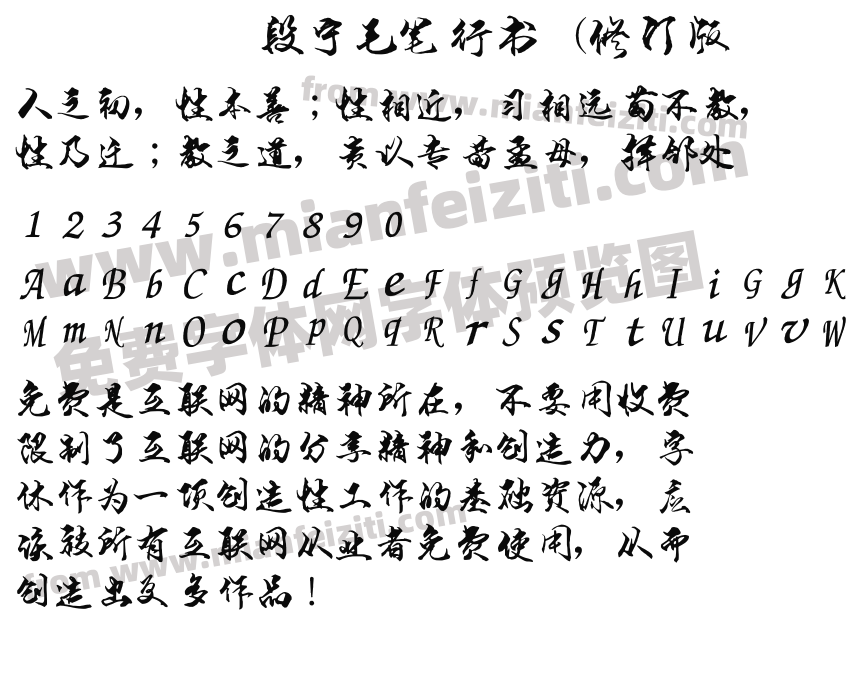 段宁毛笔行书（修订版
人之初，性本善；性相近，习相远苟不教，
性乃迁；教之道，贵以专昔孟母，择邻处
1 2 3 4 5 6 7 8 9 0
A a B b C c D d E e F f G g H h I i G g K
M m N n O o P p Q q R r S s T t U u V v W
免费是互联网的精神所在，不要用收费
限制了互联网的分享精神和创造力，字
体作为一项创造性工作的基础资源，应
该被所有互联网从业者免费使用，从而
创造出更多作品！
from www.mianfeiziti.com
www.mianfeiziti.com
免费字体网字体预览图
from www.mianfeiziti.com